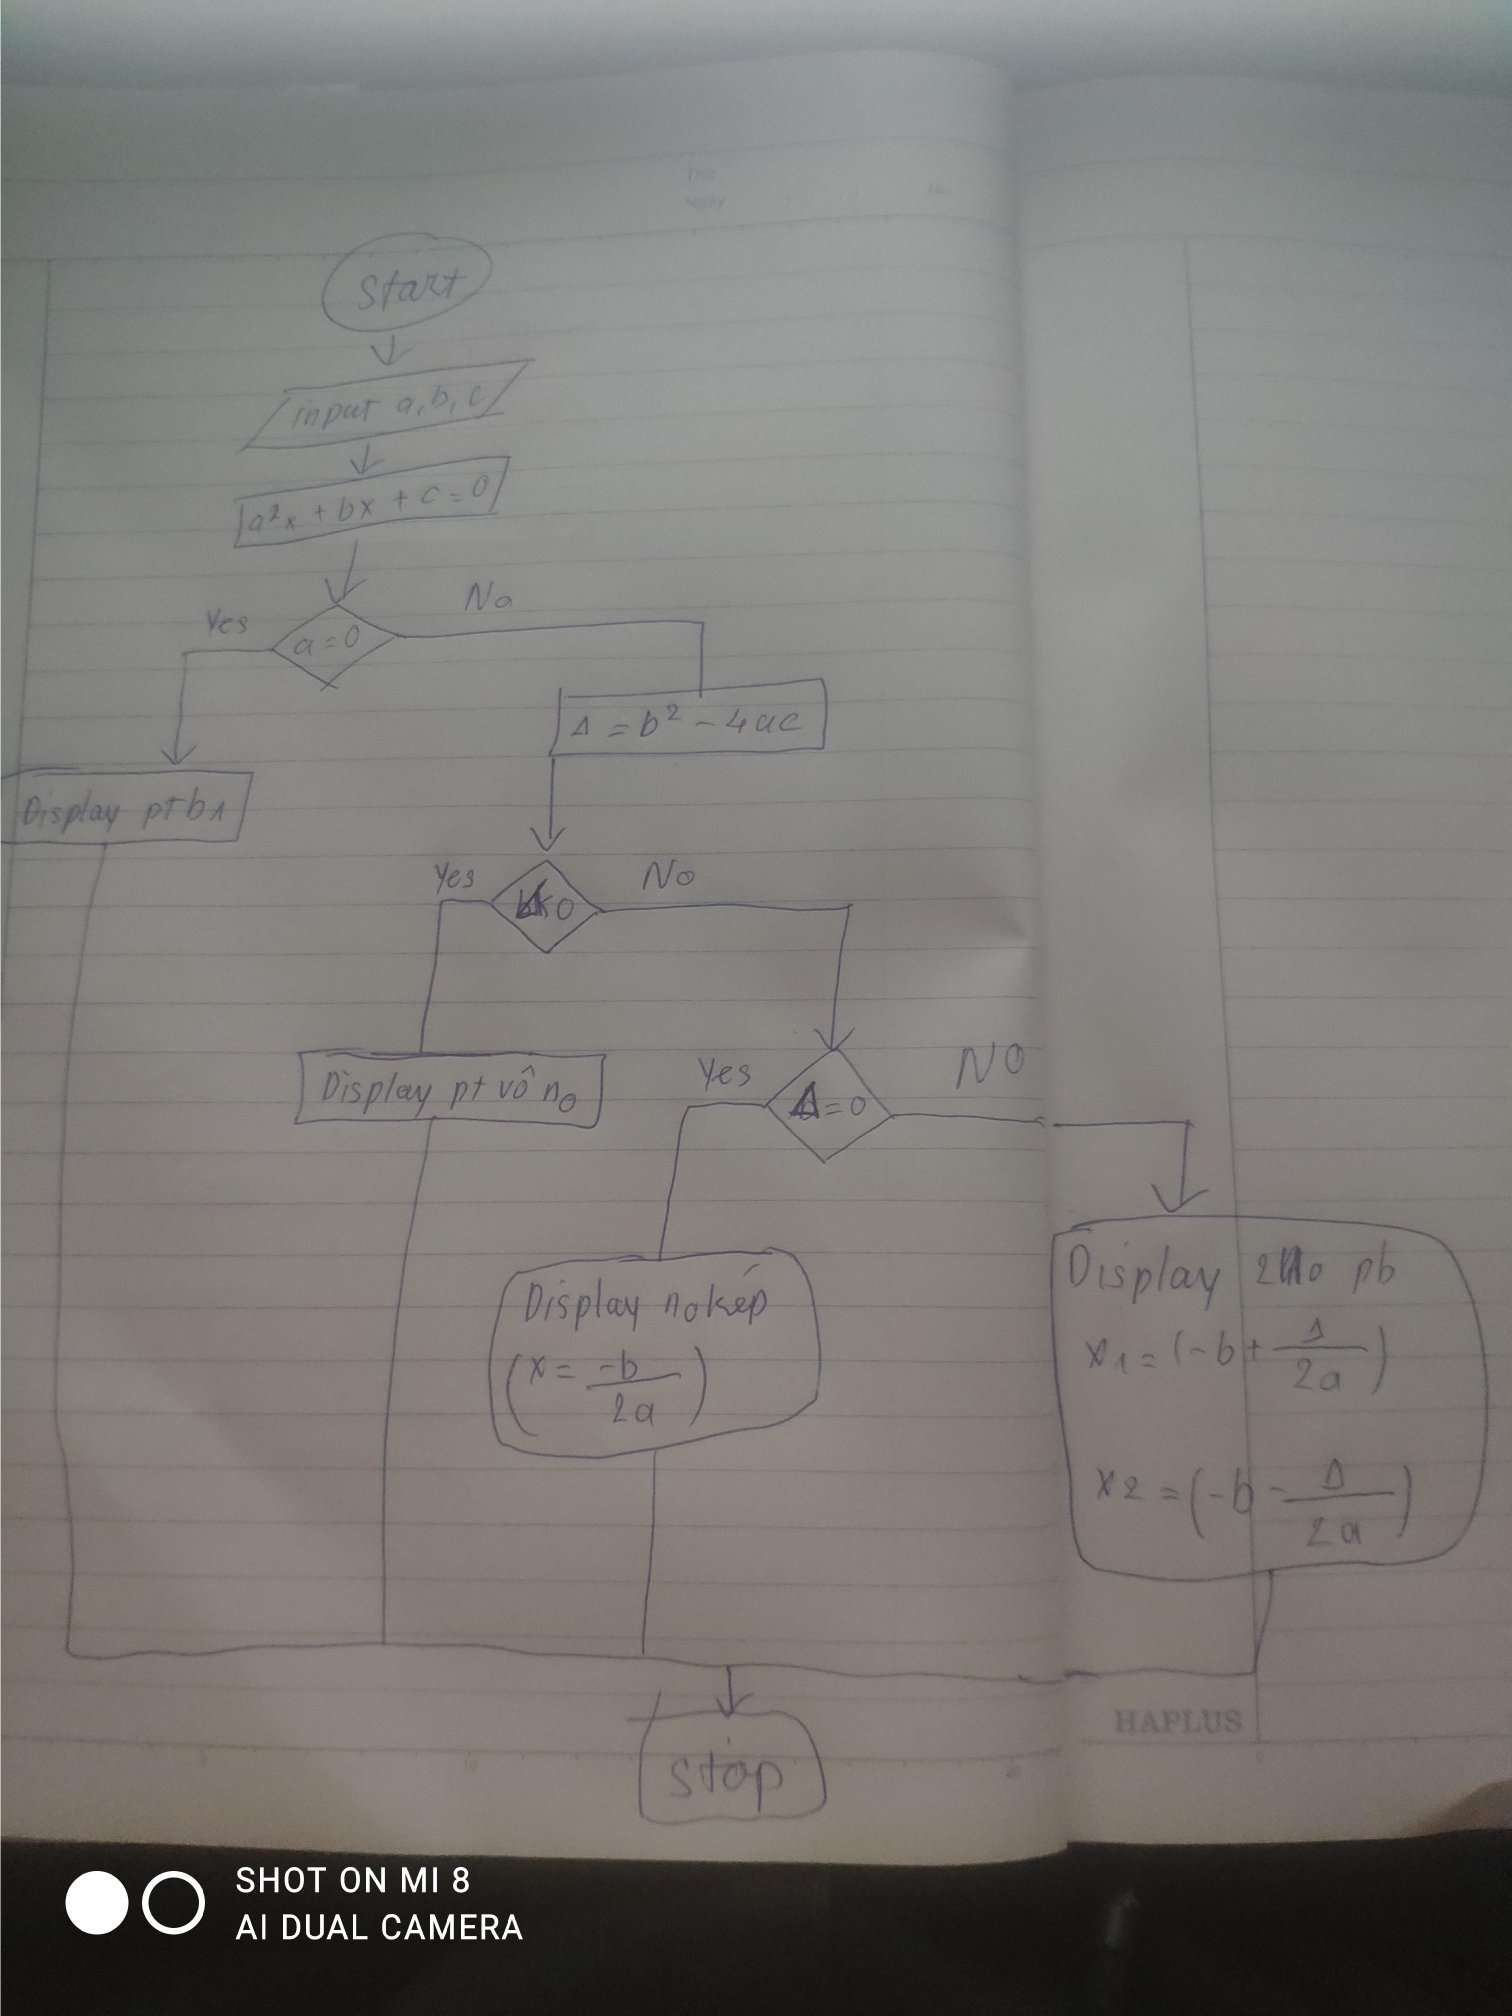 Start
input a, b, c
a²x + bx + c = 0
Yes
No
a = 0
Δ = b² - 4ac
Display pt b1
Yes
No
< 0
Display pt vô no
Yes
NO
Δ = 0
Display no kép
(x = -b / 2a)
Display 2 no pb
x1 = (-b + Δ / 2a)
x2 = (-b - Δ / 2a)
HAPLUS
stop
SHOT ON MI 8
AI DUAL CAMERA